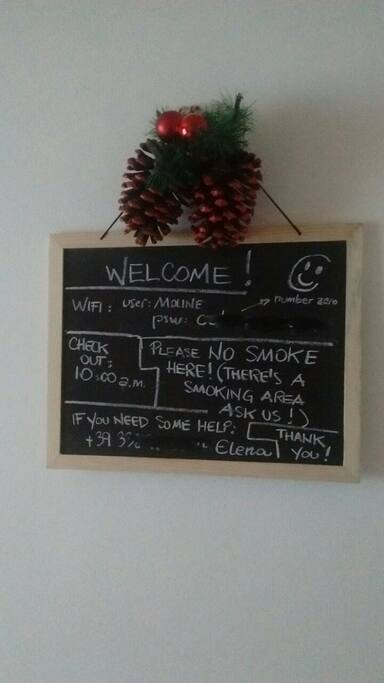 WELCOME!
WIFI: user: MOLINE
number zero
psw:
CHECK OUT: 10:00 a.m.
PLEASE NO SMOKE
HERE! (THERE'S A
SMOKING AREA
ASK US!)
IF YOU NEED SOME HELP:
+39 33
Elena
THANK
YOU!